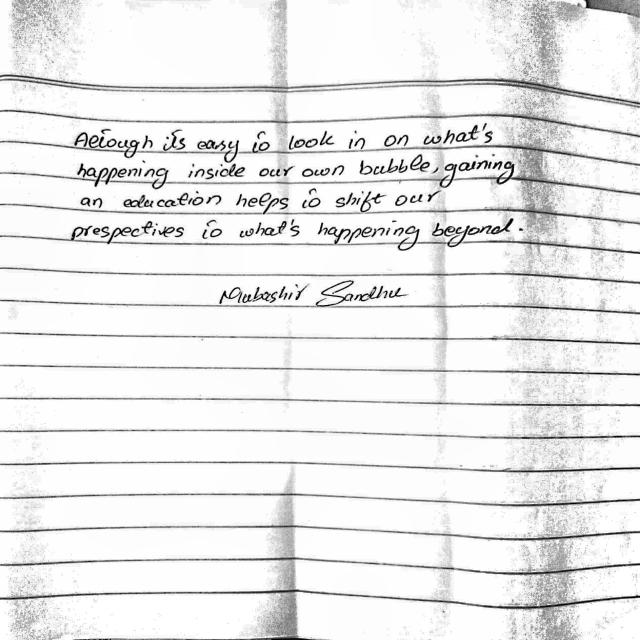 Aetough its easy to look in on what's
happening inside our own bubble, gaining
an education helps to shift our
prespectives to what's happening beyond.
Mubashir Sandhu